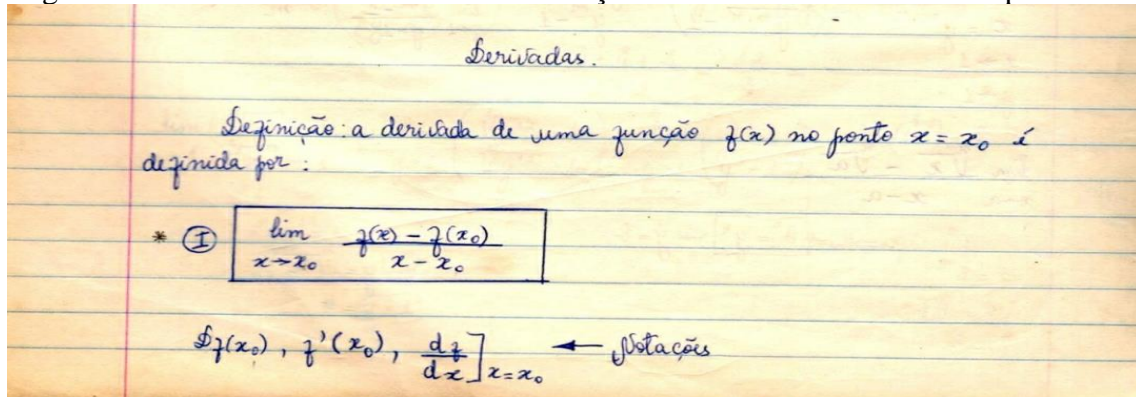 Derivadas.
Definição: a derivada de uma função f(x) no ponto x = x₀ é
definida por:
* I lim x→x₀ f(x) – f(x₀) / x – x₀
Df(x₀), f'(x₀), df/dx]x=x₀ ← Notações